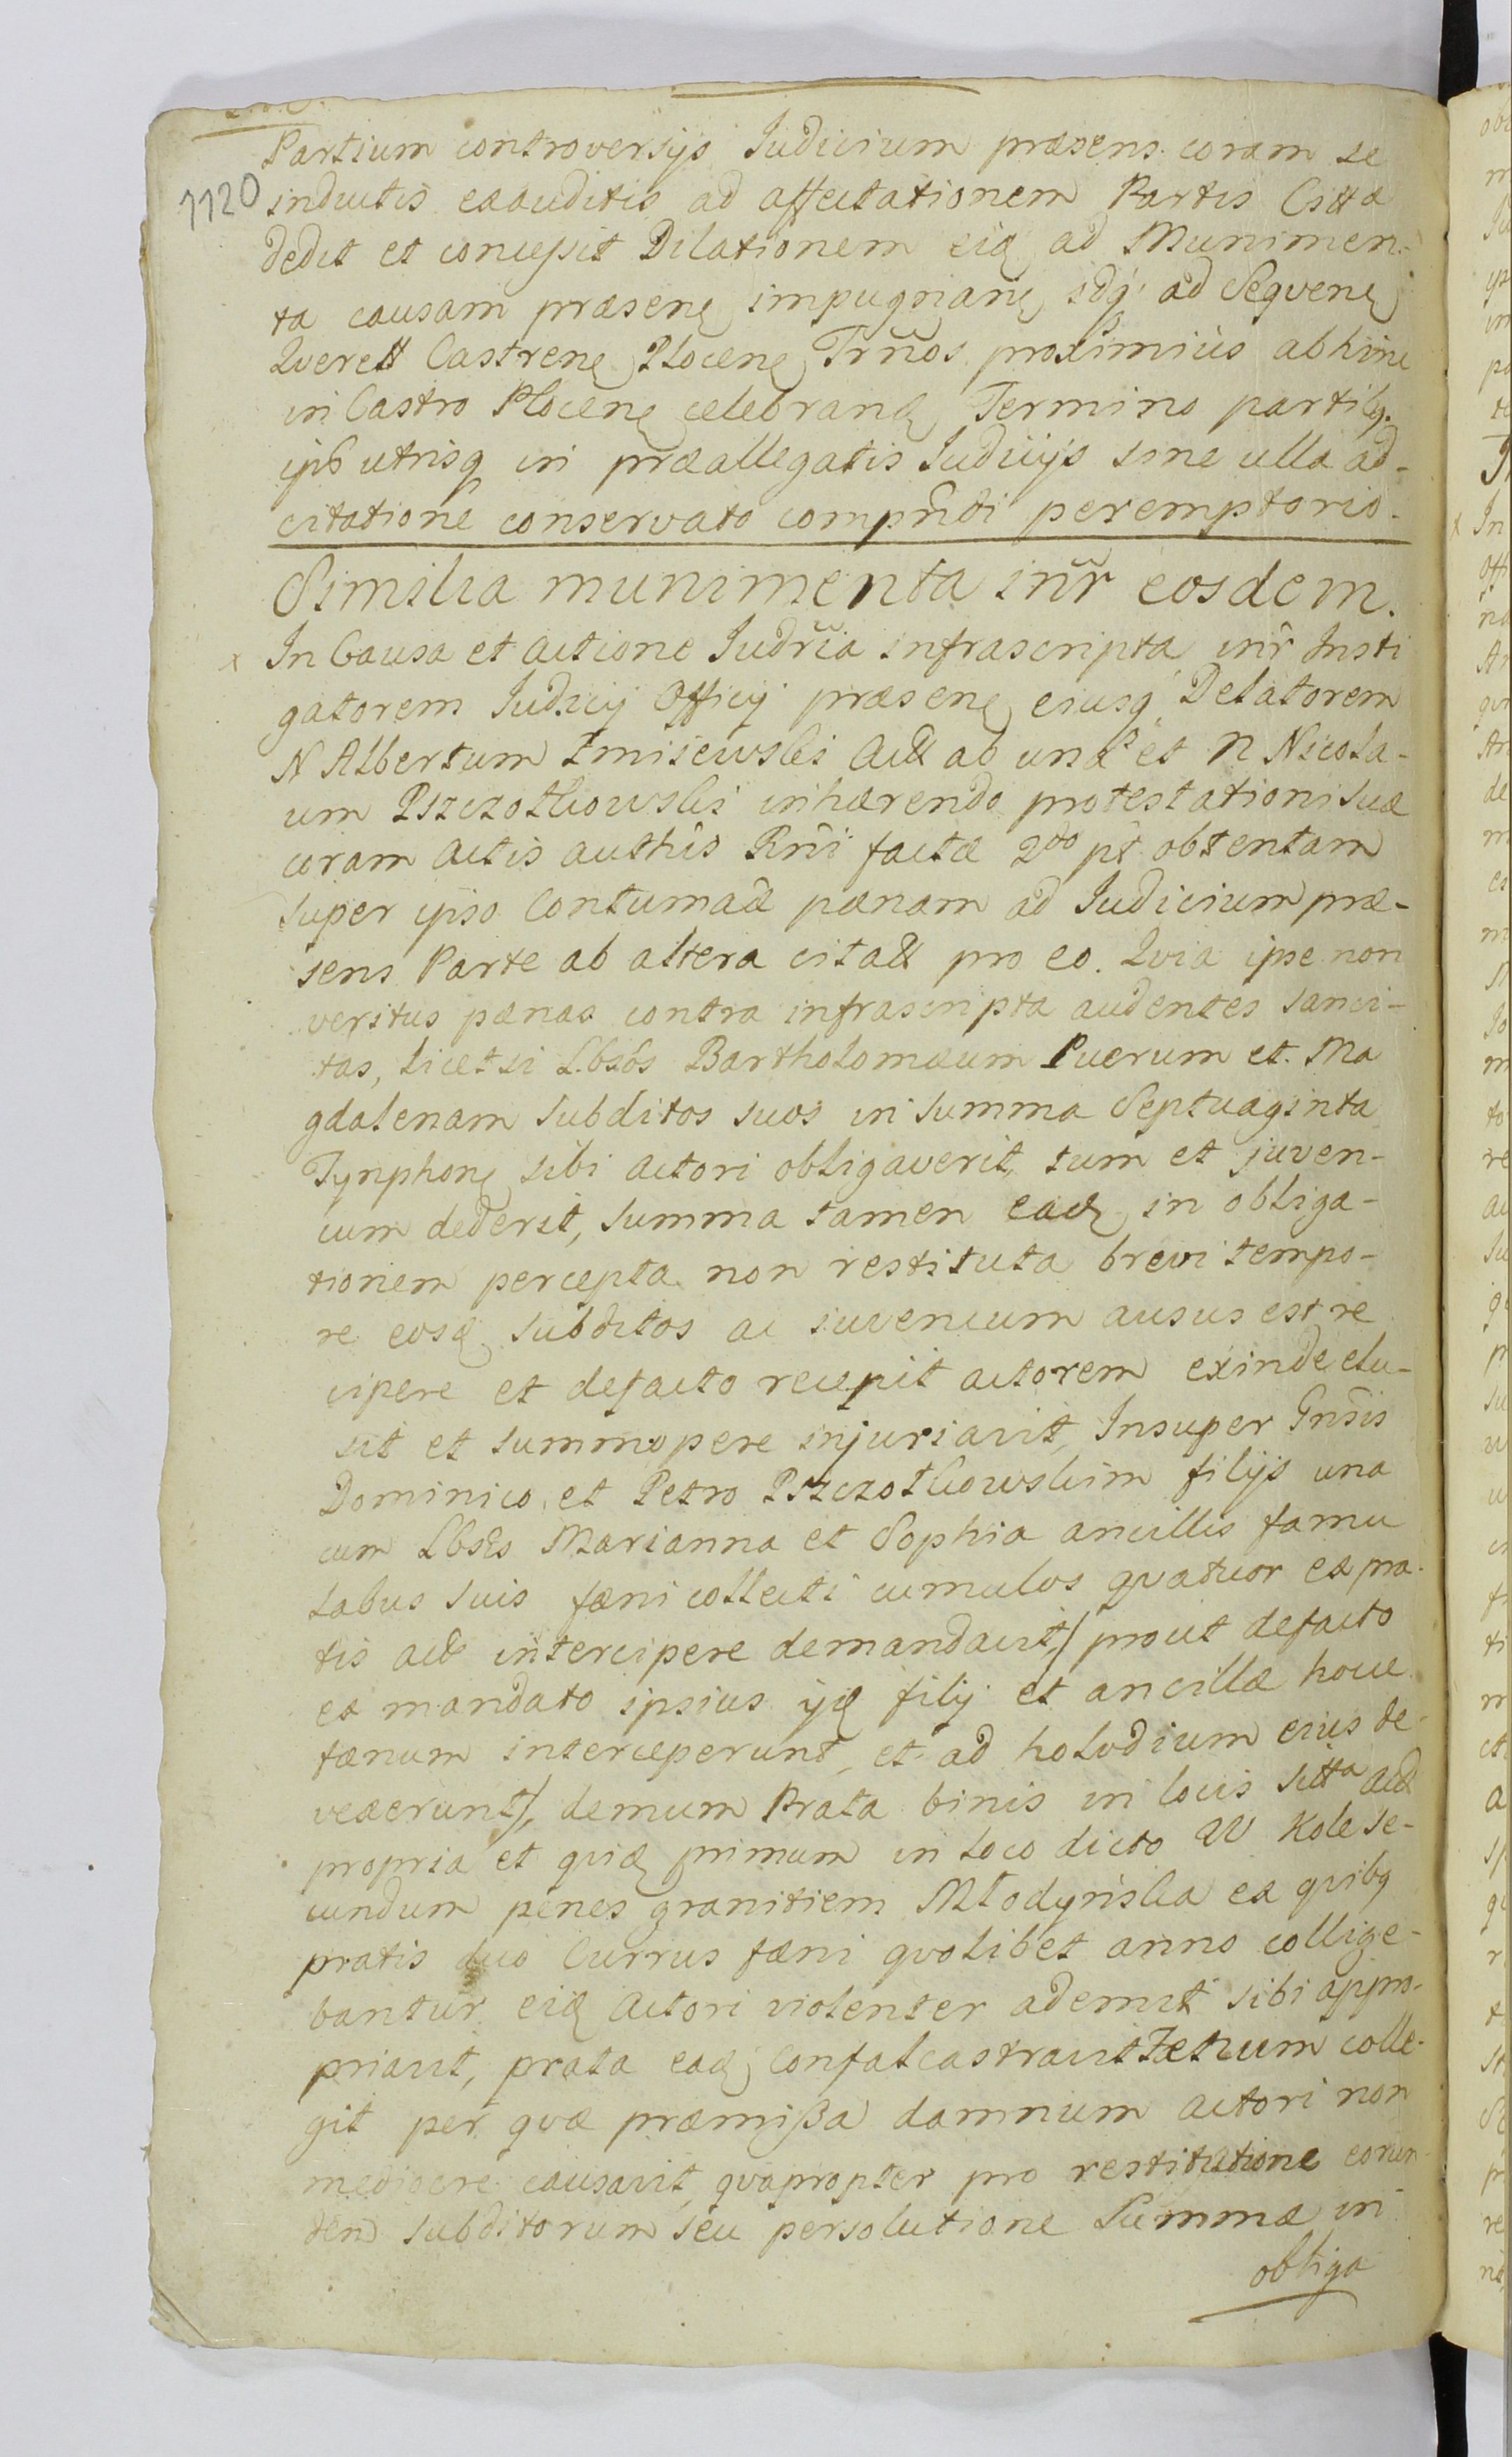 1120
Partium controversijs Judicium præsens coram se
inductis exauditis ad affectationem Partis Citta
dedit et concessit Dilationem eid ad Munimen-
ta causam præsen impugnan idq ad Seqven
Qverell Castren Plocen Trnos proximius abhinc
in Castro Plocen celebrand Termino partibq
ipis utrisq in præallegatis Judicijs sine ulla ad-
citatione conservato comprndi peremptorio.
Similia munimenta inr eosdem.
x In Causa et actione Judria infrascripta inr Insti
gatorem Judicij Officij præsen eiusq Delatorem
N Albertum Zmijewski act ab una et N Nicola-
um Pszczołkowski inhærendo protestationi suæ
coram actis authis Rni factæ 2do pt obtentam
super ipso Contumaciæ pænam ad Judicium præ-
sens Parte ab altera citatt pro eo. Qvia ipse non
veritus pænas contra infrascripta audentes sanci-
tas, licet si Lbsos Bartholomæum Puerum et Ma
gdalenam subditos suos in summa Septuaginta
Tynphon sibi actori obligaverit, tum et juven-
cum dederit, summa tamen ead in obliga-
tionem percepta non restituta brevi tempo-
re eosd subditos ac iuvencum ausus est re
cipere et defacto recepit actorem exinde elu-
sit et summopere injuriavit, Insuper Gnsis
Dominico et Petro Pszczołkowskim filijs una
cum Lbsis Marianna et Sophia ancillis famu
labus suis fæni collecti cumulos qvatuor ex pra-
tis act intercipere demandavit/ prout defacto
ex mandato ipsius ijd filij et ancillæ hocce
fænum interceperunt, et ad holodium eius de-
vexerunt/, demum Prata binis in locis sitta act
propria et qvid primum in loco dicto W Kole se-
cundum penes granitiem Młodyńska ex qvibq
pratis duo Currus fæni qvolibet anno collige-
bantur eid actori violenter ademit sibi appro-
priavit, prata ead confalcastravit fætum colle-
git per qvæ præmissa damnum actori non
mediocre causavit, qvapropter pro restitutione eorun-
dem subditorum seu persolutione Summæ in
obliga